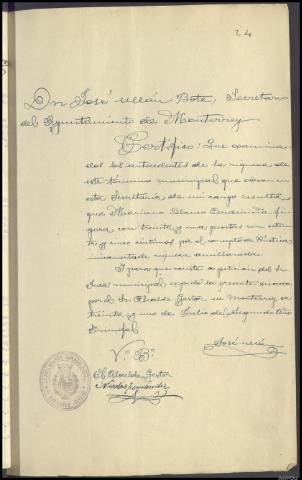 24
Don José Ulián Bote, Secretario
del Ayuntamiento de Monterrey
Certifico: Que examina
dos los antecedentes de la riqueza de
este término municipal que obran en
esta Secretaría de mi cargo resulta
que Mariano Blanco fi
gura con treinta y una pesetas con
y cinco céntimos por el concepto de Rústica
riqueza amillarada.
Y para que conste a petición del Sr.
Juez municipal expido la presente visada
por el Sr. Alcalde Gestor en Monterrey a
treinta y uno de Julio del Segundo Año
Triunfal
José Ulián
Vº Bº
El Alcalde Gestor
Nicolás Fernández